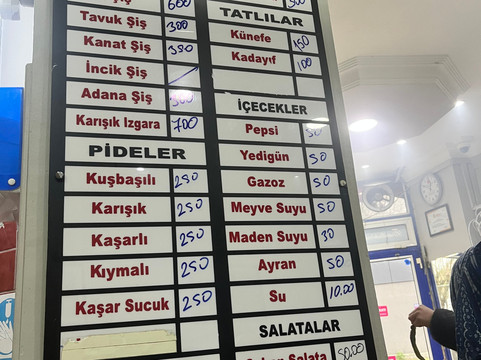 600
Tavuk Şiş 300
Kanat Şiş 350
İncik Şiş
Adana Şiş 300
Karışık Izgara 700
PİDELER
Kuşbaşılı 250
Karışık 250
Kaşarlı 250
Kıymalı 250
Kaşar Sucuk 250
TATLILAR
Künefe 150
Kadayıf 100
İÇECEKLER
Pepsi 50
Yedigün 50
Gazoz 50
Meyve Suyu 50
Maden Suyu 30
Ayran 50
Su 10.00
SALATALAR
Salata 50.00